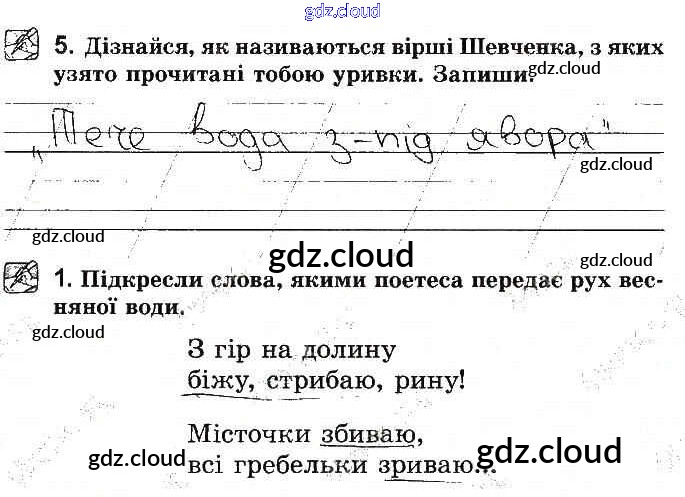 gdz.cloud
5. Дізнайся, як називаються вірші Шевченка, з яких
узято прочитані тобою уривки. Запиши.
gdz.cloud
„Тече вода з-під явора"
gdz.cloud
gdz.cloud
gdz.cloud
1. Підкресли слова, якими поетеса передає рух вес-
няної води.
gdz.cloud
З гір на долину
gdz.cloud
біжу, стрибаю, рину!
Місточки збиваю,
gdz.cloud
всі гребельки зриваю...
gdz.cloud